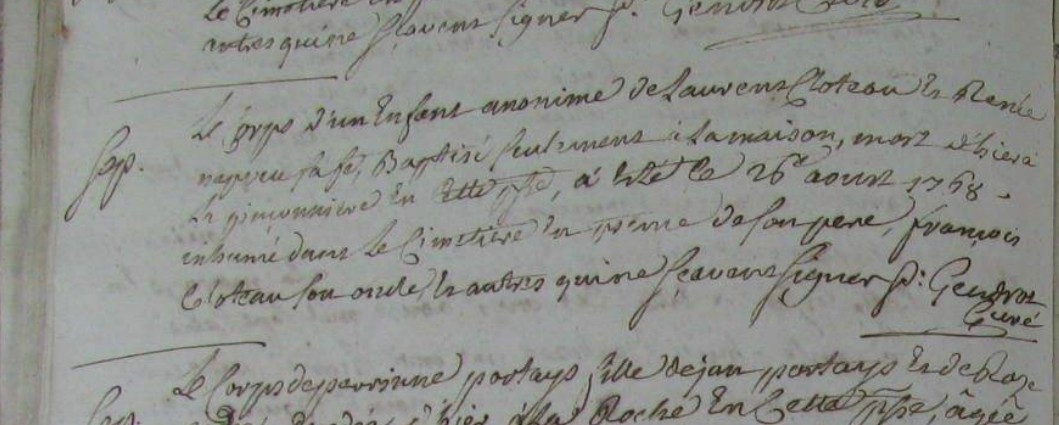 Le Cimetière en
autres qui ne sçavent signer s. Gendrot Curé
Le Corps d'un Enfant anonime de Laurent Cloteau et Renée
sa fe, Baptisé seulement à la maison, mort d'hier à
la gimonnière en cette psse, a esté ce 26e aoust 1768.
inhumé dans le Cimetière en presence de son pere, françois
Cloteau son oncle, et autres qui ne sçavent signer s: Gendrot
Curé
Sep.
Le Corps de perrinne portays fille de jan portays et de Roze
d'hier à la Roche En Cette psse, âgée
Sep.